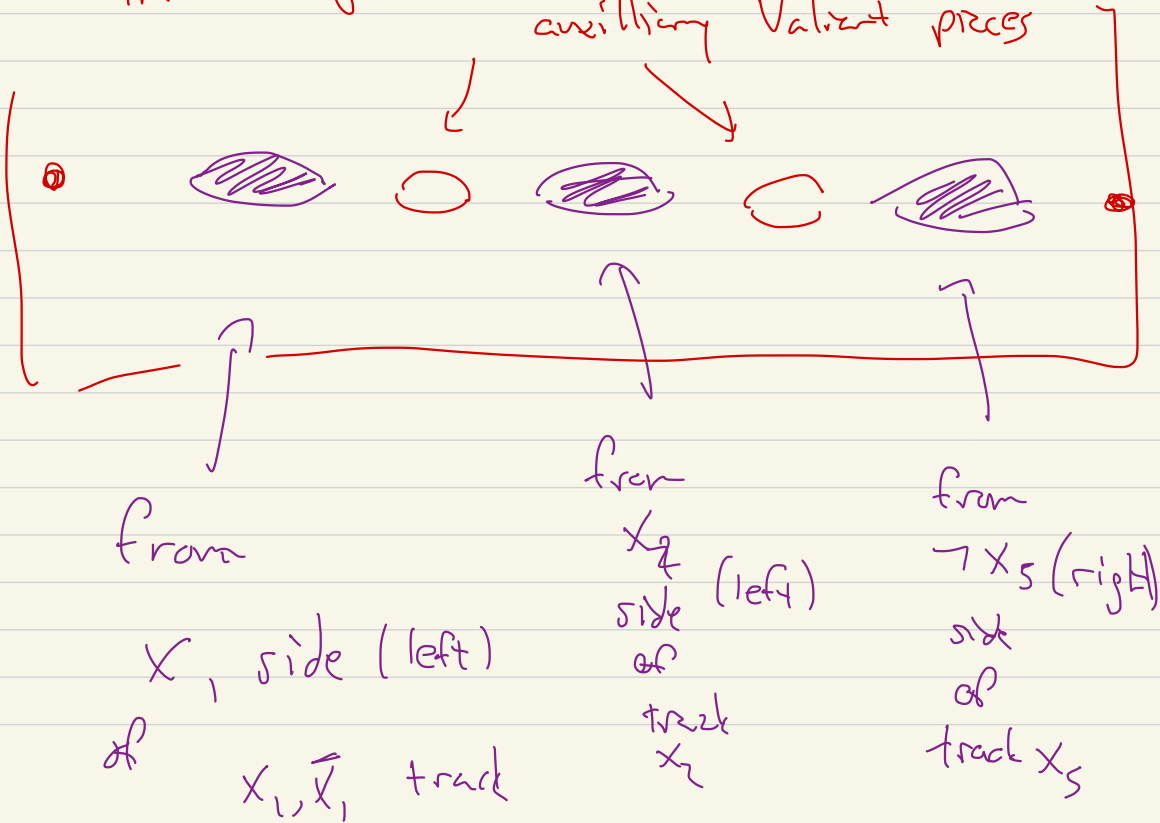 auxilliary Valiant pieces
from
X₁ side (left)
of
X₁, X̄₁ track
from
X₂
side (left)
of
track
X₂
from
¬X₅ (right)
side
of
track X₅